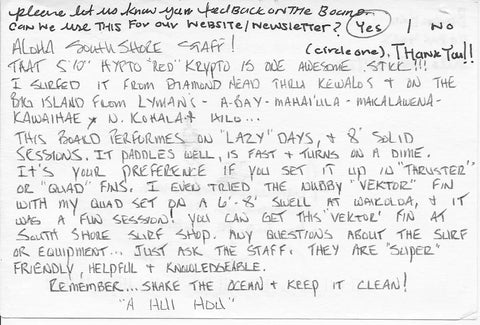 please let us know your feedback on the Board.
CAN WE USE THIS FOR OUR WEBSITE/NEWSLETTER? Yes / No
(circle one). THANK YOU!!
ALOHA SOUTH SHORE STAFF!
THAT 5'10" HYPTO "RED" KRYPTO IS ONE AWESOME STICK!!!
I SURFED IT FROM DIAMOND HEAD THRU KEWALOS + ON THE
BIG ISLAND FROM LYMAN'S - A-BAY - MAHAI'ULA - MAKALAWENA -
KAWAIHAE + N. KOHALA + HILO...
THIS BOARD PERFORMES ON "LAZY" DAYS, + 8' SOLID
SESSIONS. IT PADDLES WELL, IS FAST + TURNS ON A DIME.
IT'S YOUR PREFERENCE IF YOU SET IT UP IN "THRUSTER"
OR "QUAD" FINS. I EVEN TRIED THE NUBBY "VEKTOR" FIN
WITH MY QUAD SET ON A 6'-8' SWELL AT WAKOLOA, + IT
WAS A FUN SESSION! YOU CAN GET THIS "VEKTOR" FIN AT
SOUTH SHORE SURF SHOP. ANY QUESTIONS ABOUT THE SURF
OR EQUIPMENT... JUST ASK THE STAFF. THEY ARE "SUPER"
FRIENDLY, HELPFUL + KNOWLEDGEABLE.
REMEMBER... SHARE THE OCEAN + KEEP IT CLEAN!
"A HUI HOU"